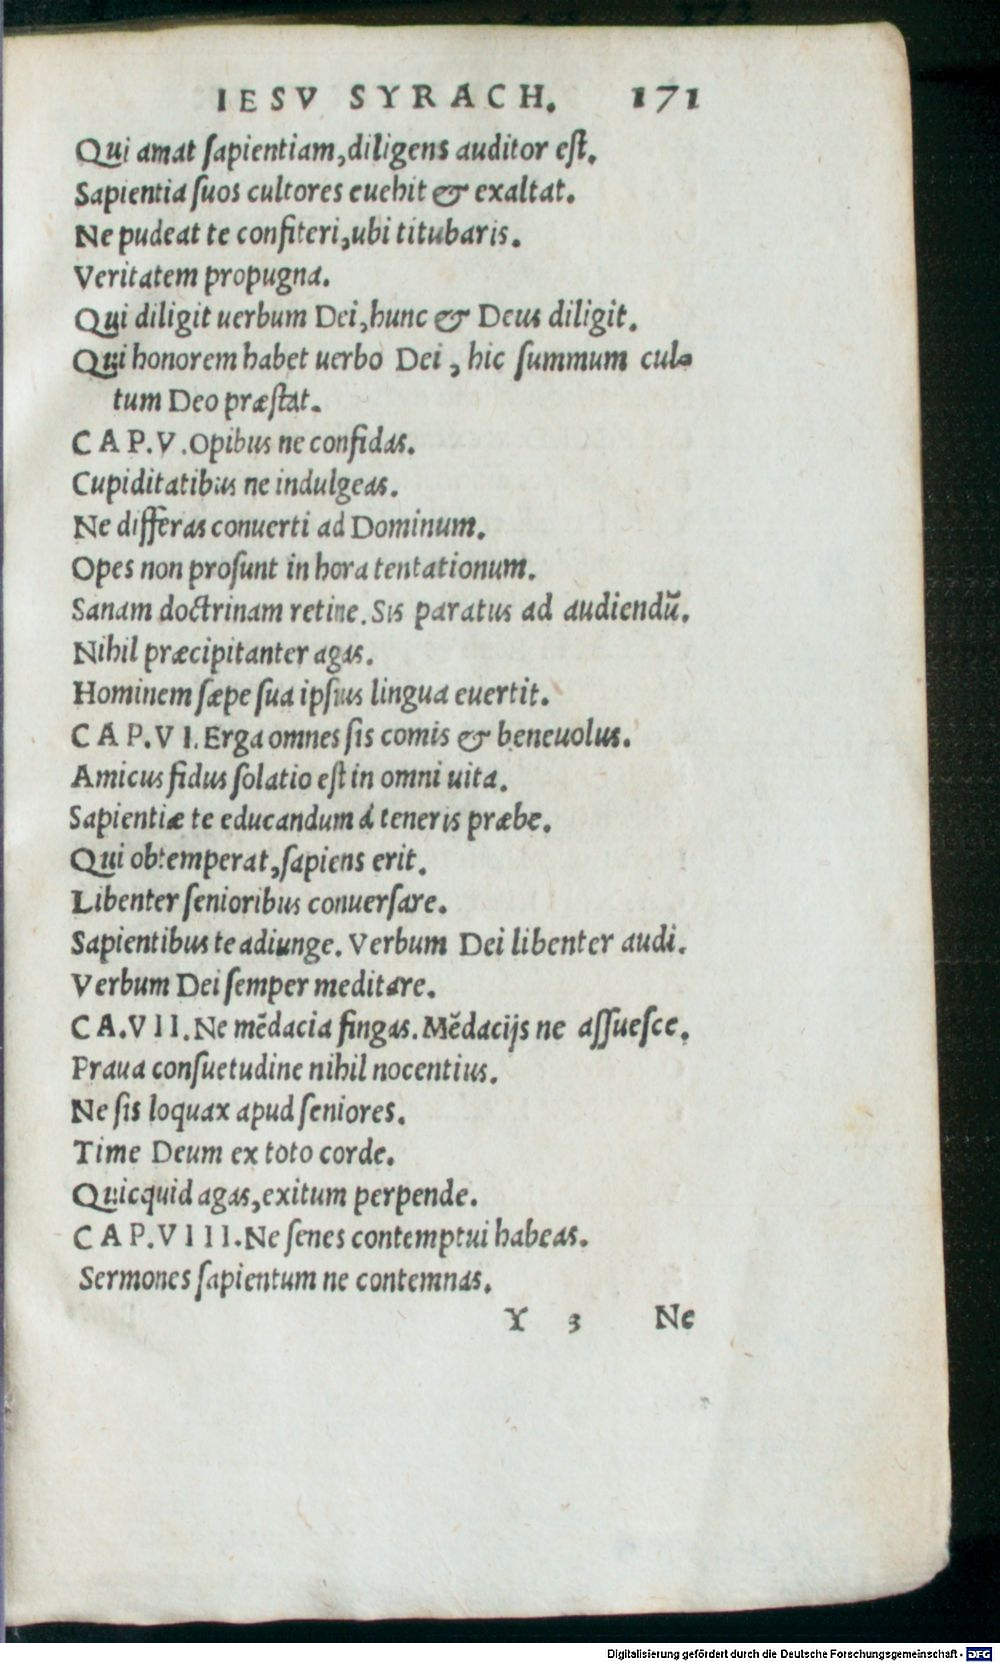 IESV SYRACH. 171
Qui amat sapientiam, diligens auditor est.
Sapientia suos cultores euehit & exaltat.
Ne pudeat te confiteri, ubi titubaris.
Veritatem propugna.
Qui diligit uerbum Dei, hunc & Deus diligit.
Qui honorem habet uerbo Dei, hic summum cul-
tum Deo præstat.
CAP. V. Opibus ne confidas.
Cupiditatibus ne indulgeas.
Ne differas conuerti ad Dominum.
Opes non prosunt in hora tentationum.
Sanam doctrinam retine. Sis paratus ad audiendũ.
Nihil præcipitanter agas.
Hominem sæpe sua ipsius lingua euertit.
CAP. VI. Erga omnes sis comis & beneuolus.
Amicus fidus solatio est in omni uita.
Sapientiæ te educandum á teneris præbe.
Qui obtemperat, sapiens erit.
Libenter senioribus conuersare.
Sapientibus te adiunge. Verbum Dei libenter audi.
Verbum Dei semper meditare.
CA. VII. Ne mẽdacia fingas. Mẽdacijs ne assuesce.
Praua consuetudine nihil nocentius.
Ne sis loquax apud seniores.
Time Deum ex toto corde.
Quicquid agas, exitum perpende.
CAP. VIII. Ne senes contemptui habeas.
Sermones sapientum ne contemnas.
Y 3 Ne
Digitalisierung gefördert durch die Deutsche Forschungsgemeinschaft - DFG